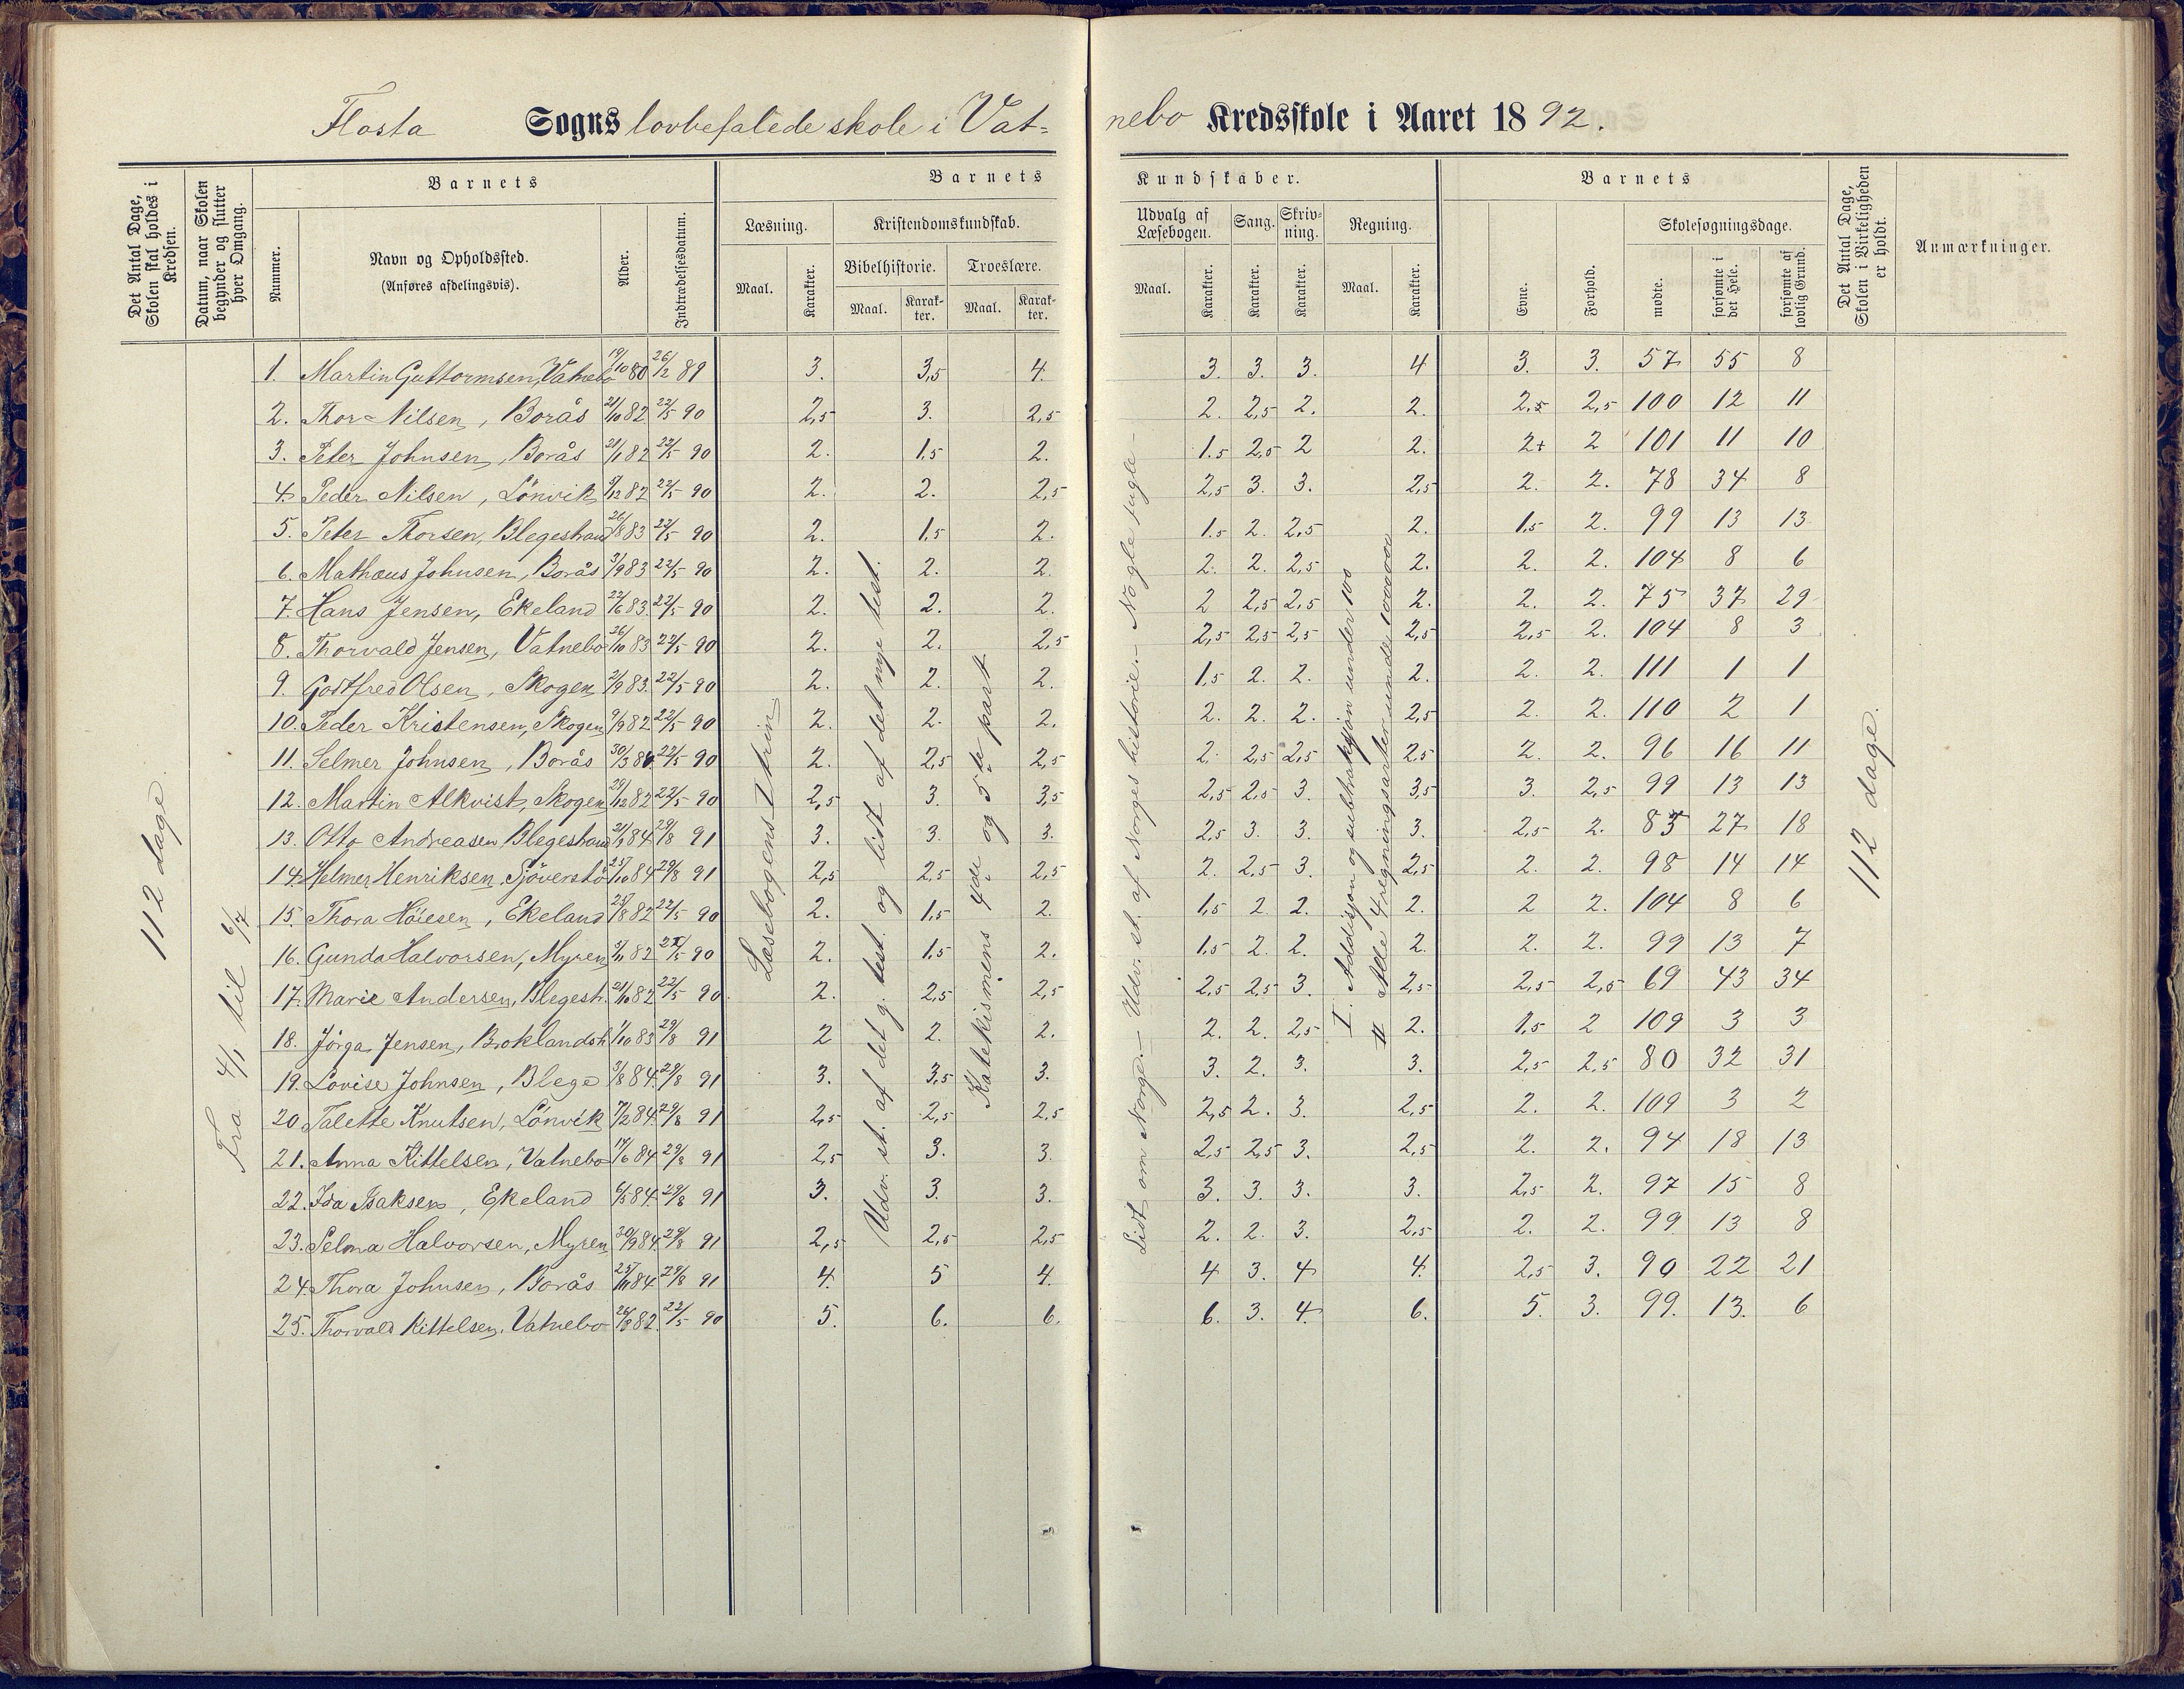 Flosta Sogns lovbefalede skole i Vatnebo Kredsskole i Aaret 1892.
Det Antal Dage, Skolen skal holdes i Kredsen.
Datum, naar Skolen begynder og slutter hver Omgang.
Barnets
Nummer.
Navn og Opholdssted. (Anføres afdelingsvis).
Alder.
Indtrædelsesdatum.
Barnets Kundskaber.
Læsning.
Maal.
Karakter.
Kristendomskundskab.
Bibelhistorie.
Maal.
Karakter.
Troeslære.
Maal.
Karakter.
Udvalg af Læsebogen.
Maal.
Karakter.
Sang.
Karakter.
Skrivning.
Karakter.
Regning.
Maal.
Karakter.
Barnets
Evne.
Forhold.
Skolesøgningsdage.
mødte.
forsømte i det Hele.
forsømte af lovlig Grund.
Det Antal Dage, Skolen i Virkeligheden er holdt.
Anmærkninger.
112 dage.
Fra 4/1 til 6/7
Læsebogens I trin
Udv. st. af det g. test. og lidt af det nye test.
Katekismens 4de og 5te part
Lidt om Norge. – Udv. st. af Norges historie. – Nogle fugle –
I. Addisjon og subtraksjon under 100
II Alle 4 regningsarter under 1000000
112 dage.
1. Martin Guttormsen, Vatnebo 19/10 80 26/2 89 3. 3,5 4. 3. 3. 3. 4 3. 3. 57 55 8
2. Thor Nilsen, Borås 21/10 82 22/5 90 2,5 3. 2,5 2. 2,5 2. 2. 2,5 2,5 100 12 11
3. Peter Johnsen, Borås 21/1 82 22/5 90 2. 1,5 2. 1.5 2,5 2 2. 2+ 2 101 11 10
4. Peder Nilsen, Lönvik 9/12 82 22/5 90 2. 2. 2,5 2,5 3. 3. 2,5 2. 2. 78 34 8
5. Peter Thorsen, Blegestrand 26/8 83 22/5 90 2. 1,5 2. 1.5 2. 2,5 2. 1,5 2. 99 13 13
6. Mathæus Johnsen, Borås 3/9 83 22/5 90 2. 2. 2. 2. 2. 2,5 2. 2. 2. 104 8 6
7. Hans Jensen, Ekeland 22/6 83. 22/5 90 2. 2. 2. 2 2,5 2,5 2. 2. 2. 75 37 29
8. Thorvald Jensen, Vatnebo 26/10 83 22/5 90 2. 2. 2,5 2,5 2,5 2,5 2,5 2,5 2. 104 8 3
9. Godtfred Olsen, Skogen 2/9 83. 22/5 90 2. 2. 2. 1,5 2. 2. 2. 2. 2. 111 1 1
10. Peder Kristensen, Skogen 9/9 82 22/5 90 2. 2. 2. 2. 2. 2. 2,5 2. 2. 110 2 1
11. Selmer Johnsen, Borås 30/3 84. 22/5 90 2. 2,5 2,5 2. 2,5 2,5 2,5 2. 2. 96 16 11
12. Martin Alkvist, Skogen 29/12 82 22/5 90 2,5 3. 3,5 2,5 2,5 3. 3,5 3. 2,5 99 13 13
13. Otto Andreasen Blegestrand 21/3 84. 29/8 91 3. 3. 3. 2,5 3. 3. 3. 2,5 2. 85 27 18
14. Helmer Henriksen, Sjöverstö 25/10 84 29/8 91 2,5 2,5 2,5 2. 2,5 3. 2,5 2. 2. 98 14 14
15. Thora Höiesen, Ekeland 25/8 82 22/5 90 2. 1,5 2. 1,5 2 2. 2. 2 2. 104 8 6
16. Gunda Halvorsen, Myren 5/11 82 22/5 90 2. 1,5 2. 1,5 2. 2. 2. 2. 2. 99 13 7
17. Marie Andersen, Blegest. 21/10 82 22/5 90. 2. 2,5 2,5 2,5 2,5 3. 2,5 2,5 2,5 69 43 34
18. Jörga Jensen, Broklandsh. 1/10 83 29/8 91 2 2. 2. 2. 2. 2,5 2. 1,5 2 109 3 3
19. Lovise Johnsen, Blege 3/8 84. 29/8 91 3. 3,5 3. 3. 2. 3. 3. 2,5 2.5 80 32 31
20. Talette Knutsen, Lönvik 7/2 84. 29/8 91 2,5 2,5 2,5 2,5 2. 3. 2,5 2. 2. 109 3 2
21. Anna Kittelsen, Vatnebo 14/6 84 29/8 91 2,5 3. 3. 2,5 2,5 3. 2,5 2. 2. 94 18 13
22. Ida Isaksen, Ekeland 6/5 84. 29/8 91 3. 3. 3. 3. 3. 3. 3. 2,5 2. 97 15 8
23. Selma Halvorsen, Myren 30/9 84. 29/8 91 2,5 2,5 2,5 2. 2. 3. 2,5 2. 2. 99 13 8
24. Thora Johnsen, Borås 25/11 84. 29/8 91 4. 5 4. 4 3. 4 4. 2,5 3. 90 22 21
25. Thorvald Kittelsen, Vatnebo 26/8 82. 22/5 90 5. 6. 6. 6. 3. 4. 6. 5. 3. 99. 13. 6